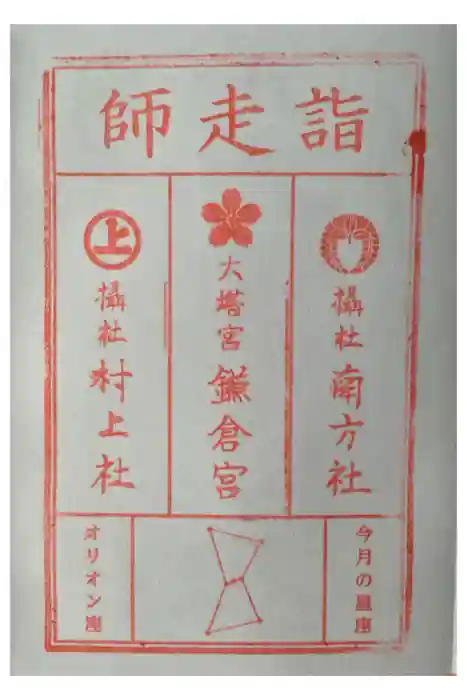 師走詣
攝社 南方社
大塔宮 鎌倉宮
上
攝社 村上社
今月の星座
オリオン座